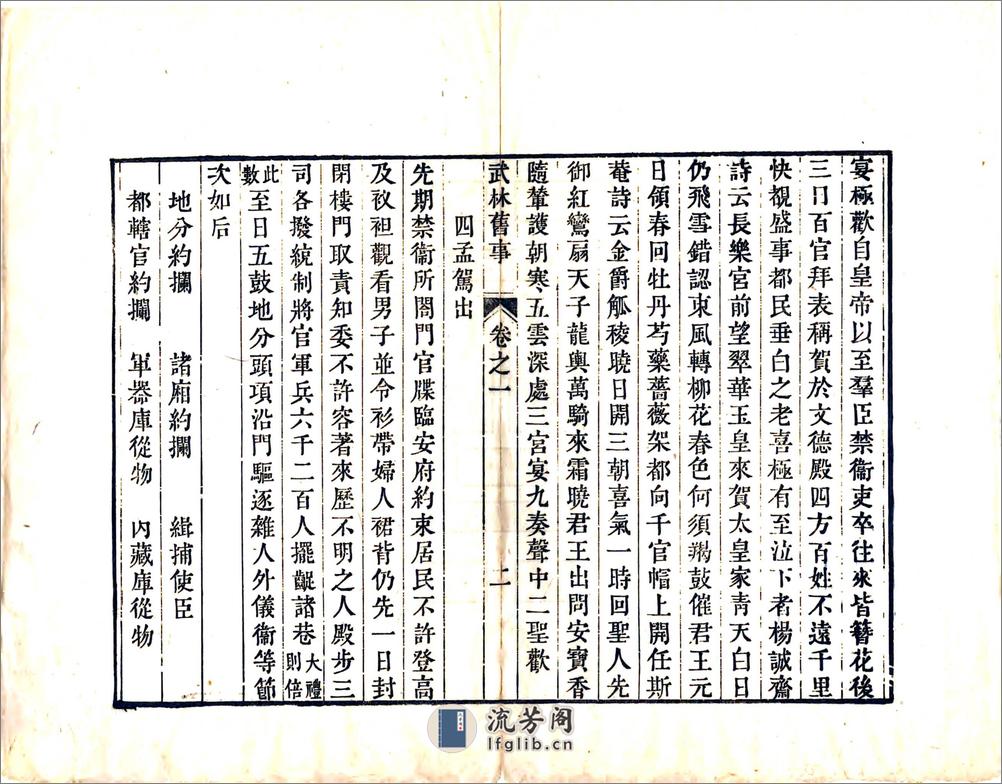 宴極歡自皇帝以至羣臣禁衞吏卒往來皆簪花後
三日百官拜表稱賀於文德殿四方百姓不遠千里
快覩盛事都民垂白之老喜極有至泣下者楊誠齋
詩云長樂宮前望翠華玉皇來賀太皇家靑天白日
仍飛雪錯認東風轉柳花春色何須羯鼓催君王元
日領春回牡丹芍藥薔薇架都向千官帽上開任斯
菴詩云金爵觚稜曉日開三朝喜氣一時回聖人先
御紅鸞扇天子龍輿萬騎來霜曉君王出問安寶香
隨輦護朝寒五雲深處三宮宴九奏聲中二聖歡
武林舊事 卷之一 二
四孟駕出
先期禁衞所閤門官牒臨安府約束居民不許登高
及衩袒觀看男子並令衫帶婦人裙背仍先一日封
閉樓門取責知委不許容著來歷不明之人殿步三
司各撥統制將官軍兵六千二百人擺齪諸巷大禮則倍
此數至日五鼓地分頭項沿門驅逐雜人外儀衞等節
次如后
地分約攔 諸廂約攔 緝捕使臣
都轄官約攔 軍器庫從物 內藏庫從物
流芳阁
lfglib.cn